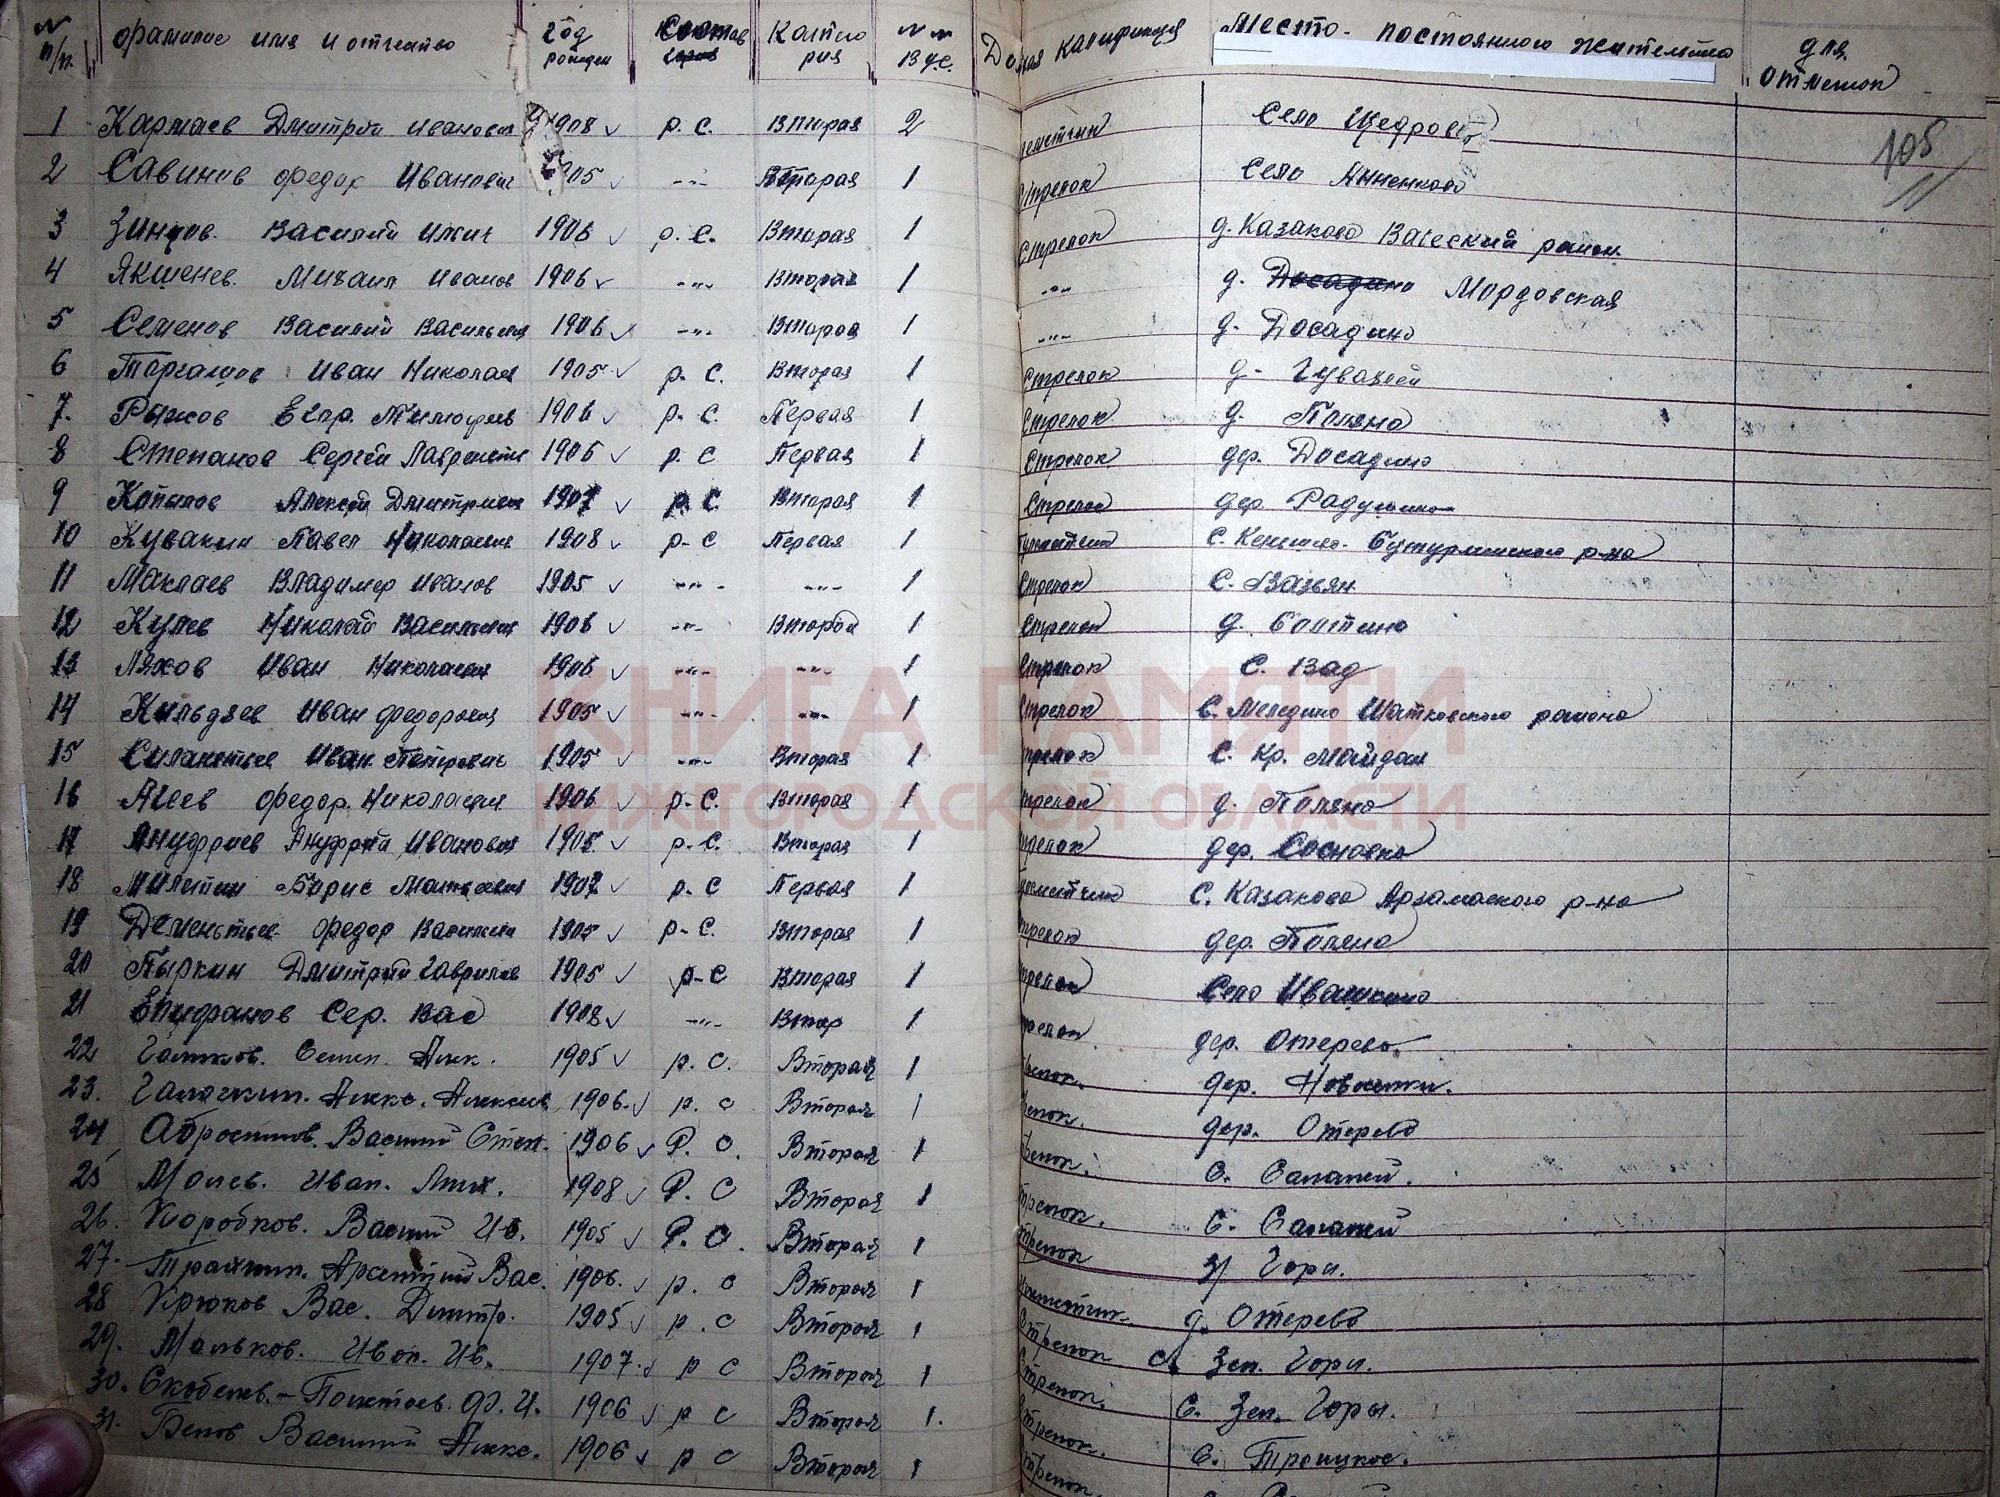 № п/п. фамилие имя и отчество год рожден Состав Катго рия № № ВУС. Должная калификация Место постоянного жительства для отметок
105
1 Кармаев Дмитрий Иванович 1908 р. с. Вторая 2 Село Щедровка
2 Савинов Федор Иванович 1905 -"- Вторая 1 Стрелок Село Анненково
3 Зинцов. Василий Ильич 1906 р. с. Вторая 1 Стрелок д. Казаково Вачский район.
4 Якшенев. Михаил Иванов 1906 -"- Вторая 1 -"- д. Досадино Мордовская
5 Семенов Василий Васильевич 1906 -"- Вторая 1 -"- д. Досадино
6 Торгашов Иван Николаев 1905 р. с. Вторая 1 Стрелок д.
7. Рыжов Егор. Тимофеев 1906 р. с. Первая 1 Стрелок д. Поляна
8 Степанов Сергей Лаврентьев 1906 р. с Первая 1 Стрелок дер. Досадино
9 Копылов Алексей Дмитриевич 1907 р. с. Вторая 1 Стрелок дер. Радушино
10 Кувакин Павел Николаевич 1908 р-с Первая 1 С. Бутурлинского р-на
11 Маклаев Владимер Иванов 1905 -"- -"- 1 Стрелок С. Вазьян
12 Кулев Николай Васильевич 1906 -"- Второй 1 Стрелок д. Болтино
13 Ляхов Иван Николаевич 1906 -"- -"- 1 Стрелок С. Вад
14 Кильдяев Иван Федорович 1905 -"- -"- 1 Стрелок С. Меледино Шатковского района
15 Силантьев Иван Петрович 1905 -"- Вторая 1 Стрелок С. Кр. Майдан
16 Агеев Федор. Николаевич 1906 р-с. Вторая 1 Стрелок д. Поляна
17 Ануфриев Ануфрий Иванович 1905 р-с. Вторая 1 Стрелок дер. Сосновка
18 Милетин Борис Матвеевич 1907 р. с Первая 1 С. Казаково Арзамаского р-на
19 Дементьев Федор Васильев 1905 р-с. Вторая 1 Стрелок дер. Поляна
20 Пыркин Дмитрий Гаврилов 1905 р-с Вторая 1 Стрелок Село Ивашкино
21 Епифанов Сер. Вас 1908 -"- Втор 1 Стрелок дер. Отерево.
22 Семен. Алек. 1905 р. с. Вторая 1 Стрелок. дер. Новоселки.
23. Галочкин. Алекс. Алексеев 1906. р. с Вторая 1 Стрелок. дер. Отерево
24 Абросимов. Василий Степ. 1906 Р. С. Вторая 1 Стрелок. С. Салалей.
25 Иван. Мих. 1908 Р. С Вторая 1 Стрелок. С. Салалей
26. Коробков. Василий Ив. 1905 Р. С. Вторая 1 Стрелок З/ Гори.
27. Арсентий Вас. 1906. р. с Вторая 1 д. Отерево
28 Крюков Вас. Дмитр. 1905 р. с Вторая 1 Стрелок С. Зел. Гори.
29. Мальков. Иван. Ив. 1907. р с Вторая 1 Стрелок. С. Зел. Горы.
30. Скобелев.-Полетаев. Ф. И. 1906 р с Вторая 1. Стрелок. С. Троицкое.
31. Белов Василий Алекс. 1906 р с Вторая 1 Стрелок.
КНИГА ПАМЯТИ
НИЖЕГОРОДСКОЙ ОБЛАСТИ